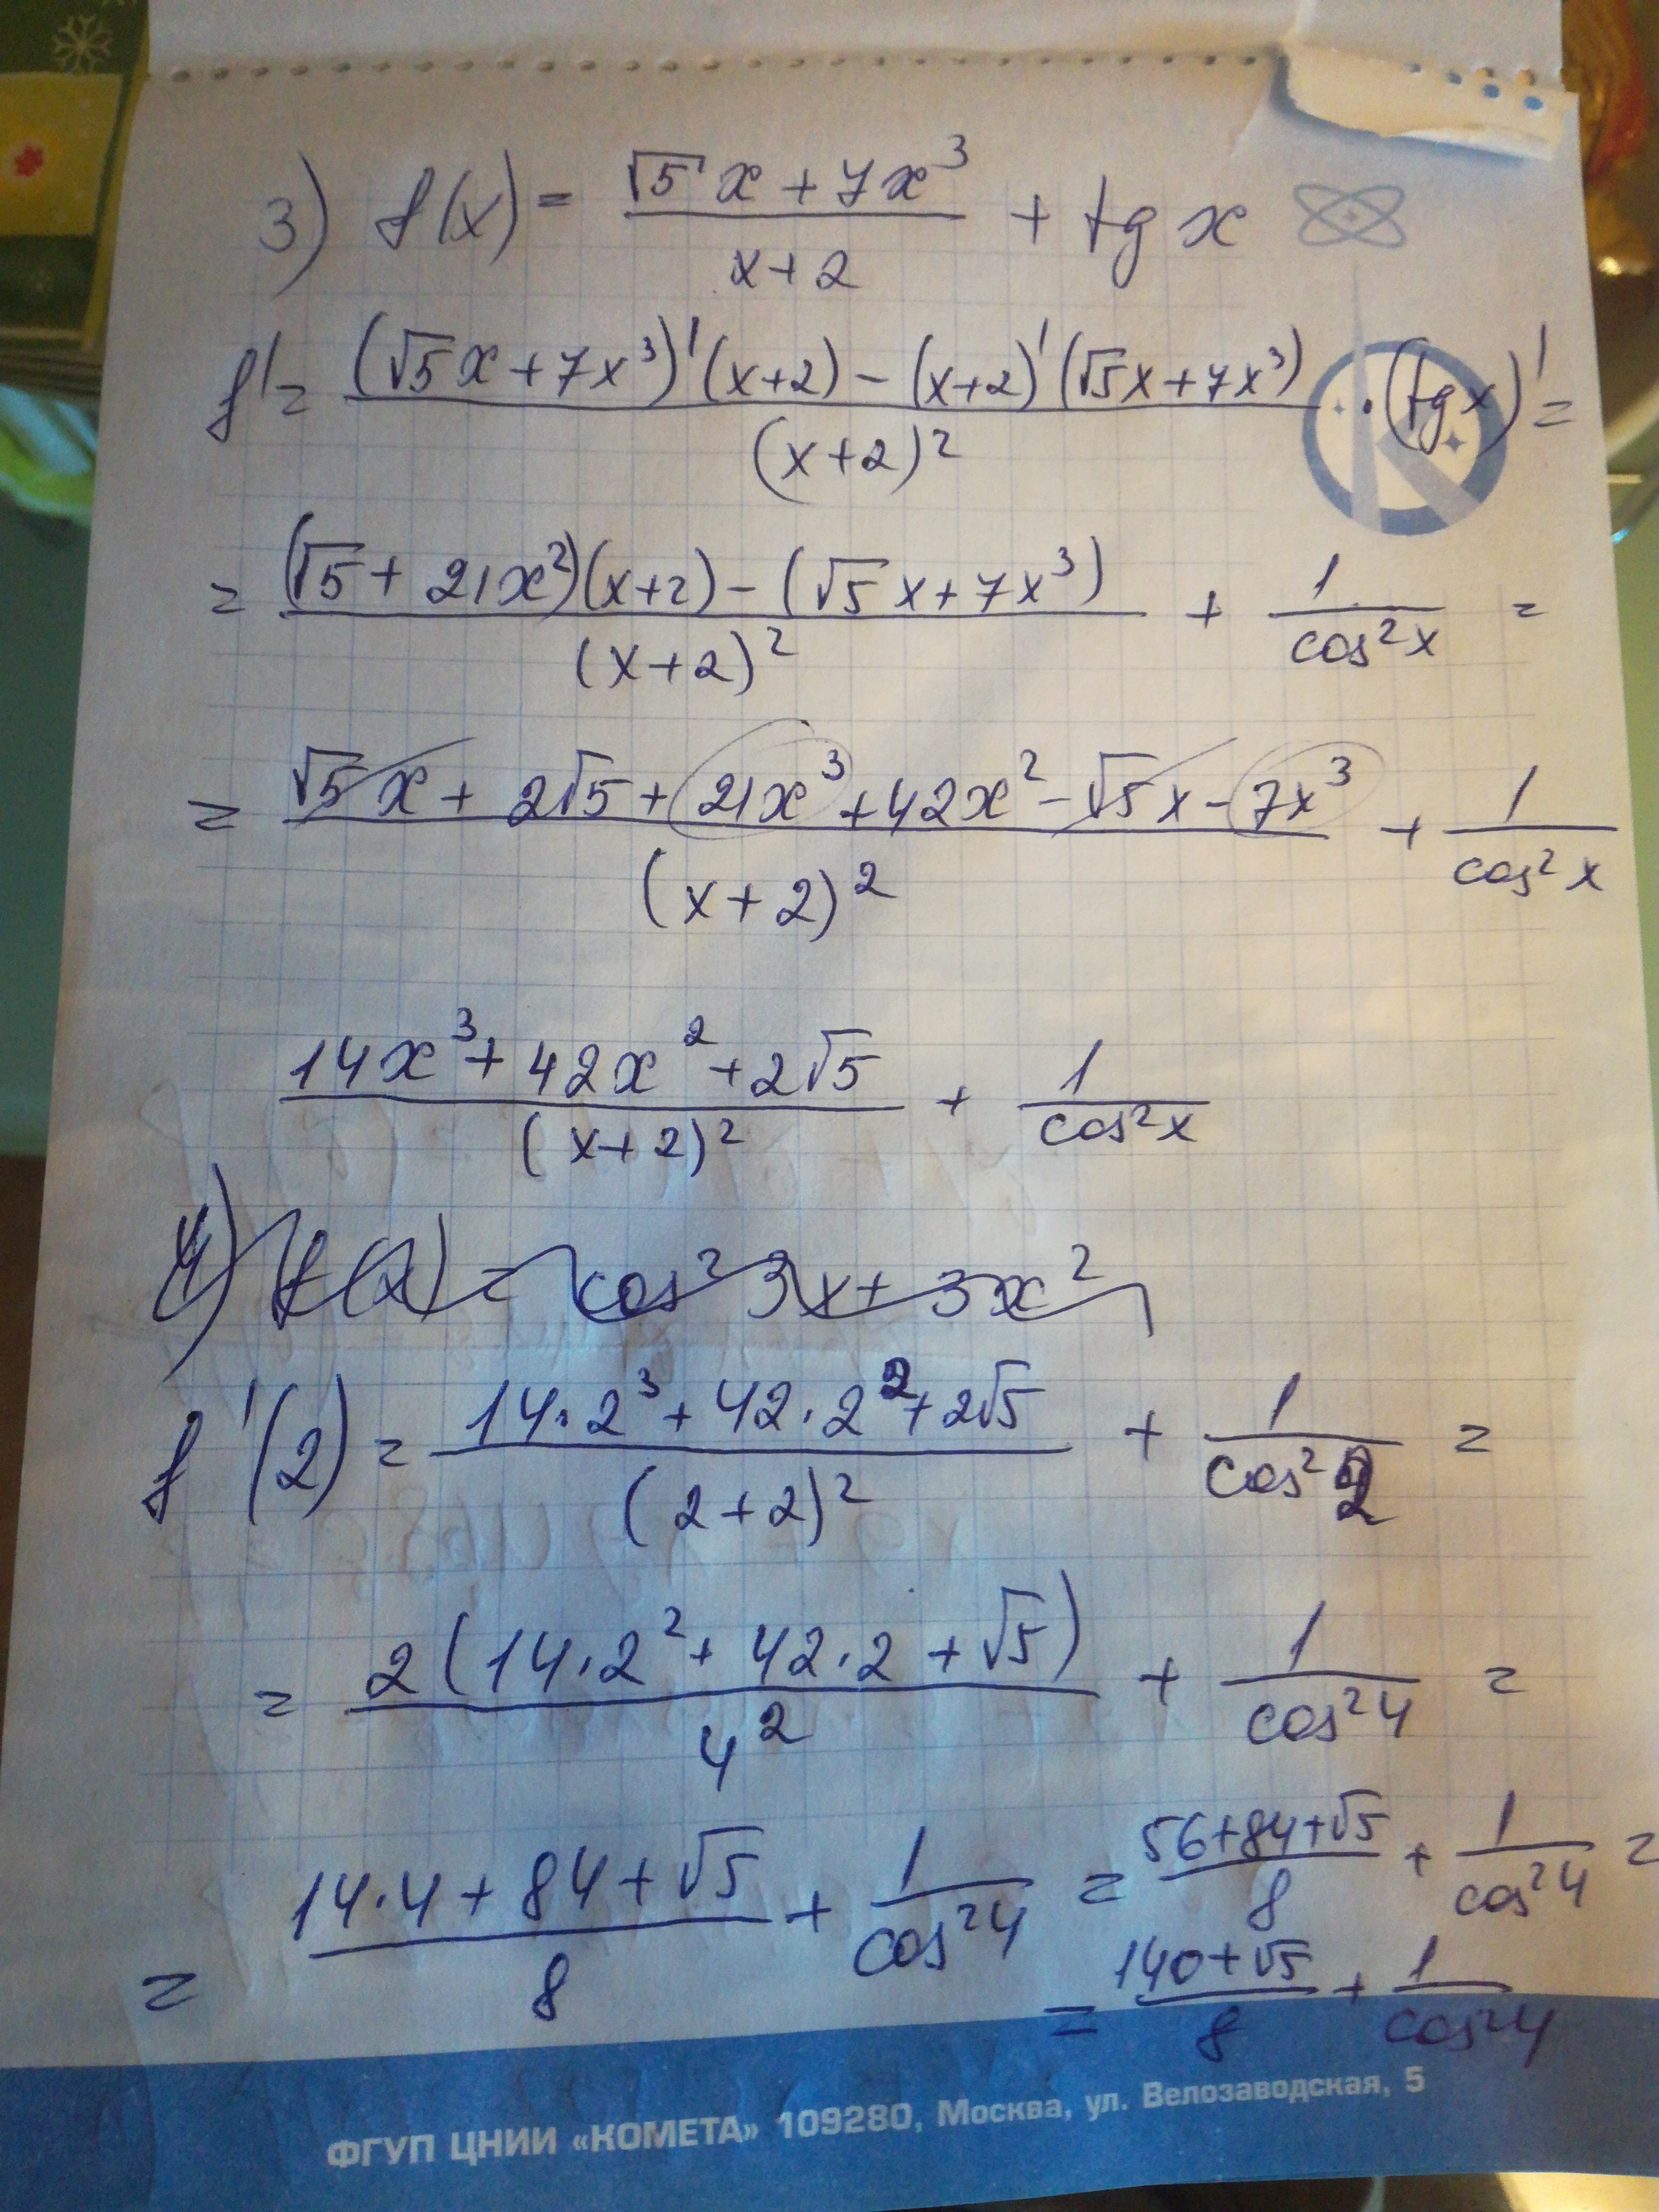 3) f(x) = (√5 x + 7x³)/(x+2) + tg x
f' = ((√5x + 7x³)'(x+2) − (x+2)'(√5x + 7x³))/(x+2)² · (tg x)' =
= ((√5 + 21x²)(x+2) − (√5x + 7x³))/(x+2)² + 1/cos²x =
= (√5x + 2√5 + 21x³ + 42x² − √5x − 7x³)/(x+2)² + 1/cos²x
(14x³ + 42x² + 2√5)/(x+2)² + 1/cos²x
4) f(x) = cos² 3x + 3x²
f'(2) = (14·2³ + 42·2² + 2√5)/(2+2)² + 1/cos²2 =
= 2(14·2² + 42·2 + √5)/4² + 1/cos²4 =
= (14·4 + 84 + √5)/8 + 1/cos²4 = (56+84+√5)/8 + 1/cos²4 =
= (140+√5)/8 + 1/cos²4
ФГУП ЦНИИ «КОМЕТА» 109280, Москва, ул. Велозаводская, 5